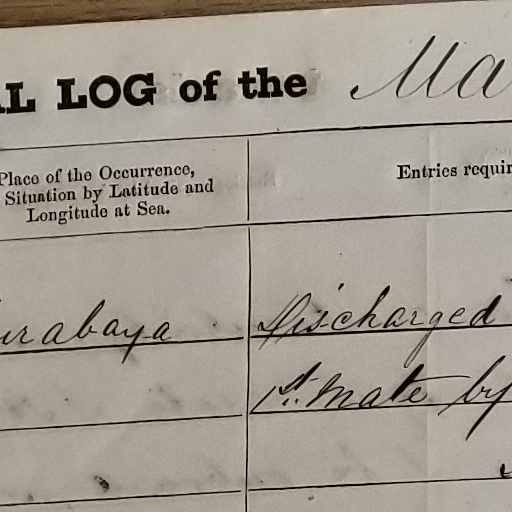 LOG of the Ma
Place of the Occurrence,
Situation by Latitude and
Longitude at Sea.
Entries requir
urabaya
Discharged
1st. Mate by